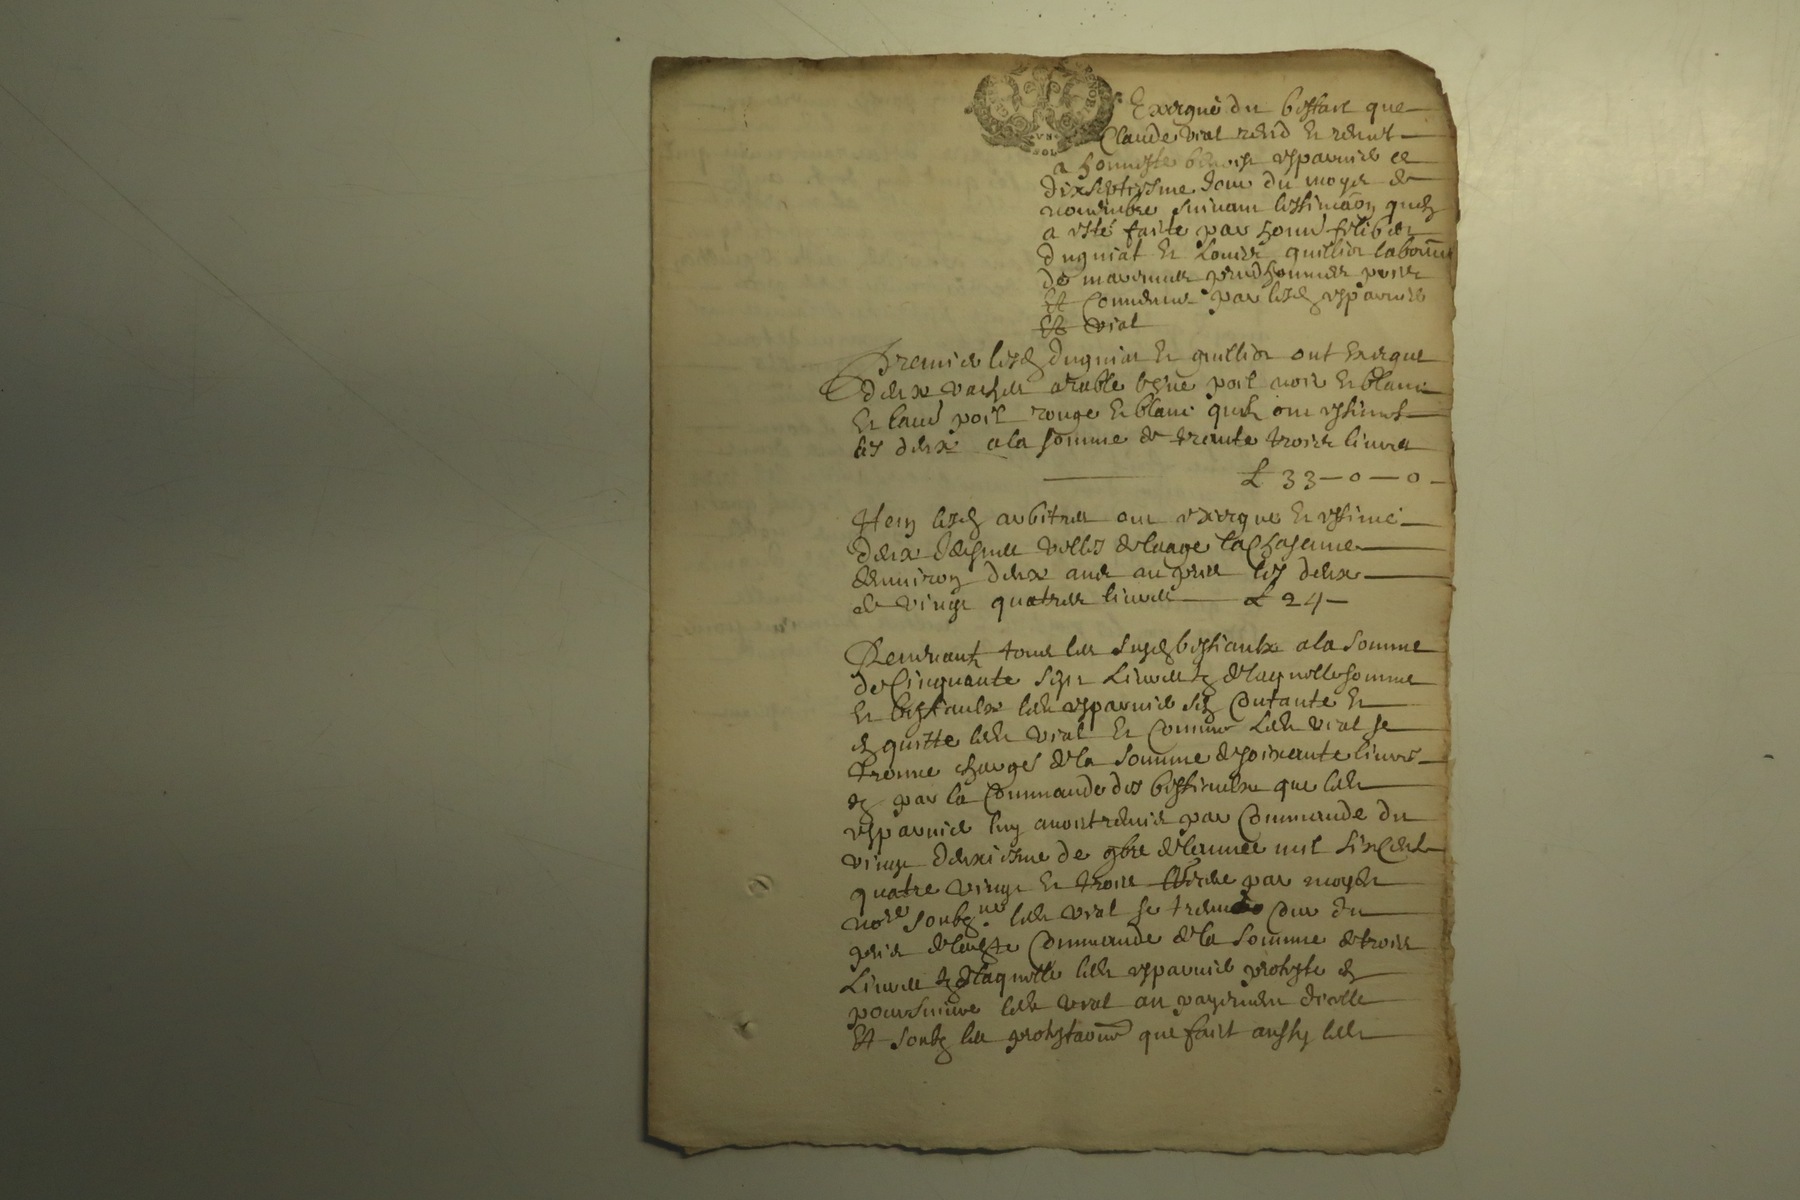 Exergue du bestail que
Claude vial rend et remet
a honneste benoist esparvier ce
dixseptiesme Jour du moys de
novembre suivant lestimaon quen
a esté faite par honn
dugniat et Louis quillier laboureur
de prudhommes pris
Et Convenus par lesd esparvier
Et vial
Premier lesd dugniat et quillier ont Exergue
deux vaches arable lune poil noir Et blanc
Et lautre poil rouge Et blanc quils ont estimes
les deux a la somme de trante trois livres
£ 33 — 0 — 0
Item lesd arbitres ont exergue Et estimé
deux velles de laage chascune
denviron deux ans au pris les deux
de vingt quatres livres £ 24
Revenant tous les susd bestiaulx a la somme
de Cinquante sept Livres tz de laquelle somme
Et bestiaulx led esparvier sen Contante Et
en quitte led vial Et Comme led vial se
treuve charge de la somme de soixante livres
tz par la Commande des bestiaulx que led
esparvier luy avoit remis par Commande du
vingt deuxiesme de 9bre de lannee mil six Cent
quatre vingt Et trois par moyen
no.re soubz.ne led vial se treuve due du
pris de lad.te Commande de la somme de trois
Livres tz de laquelle led esparvier proteste de
poursuivre led vial au payement dicelle
Et soubz les protestaons que fait aussy led